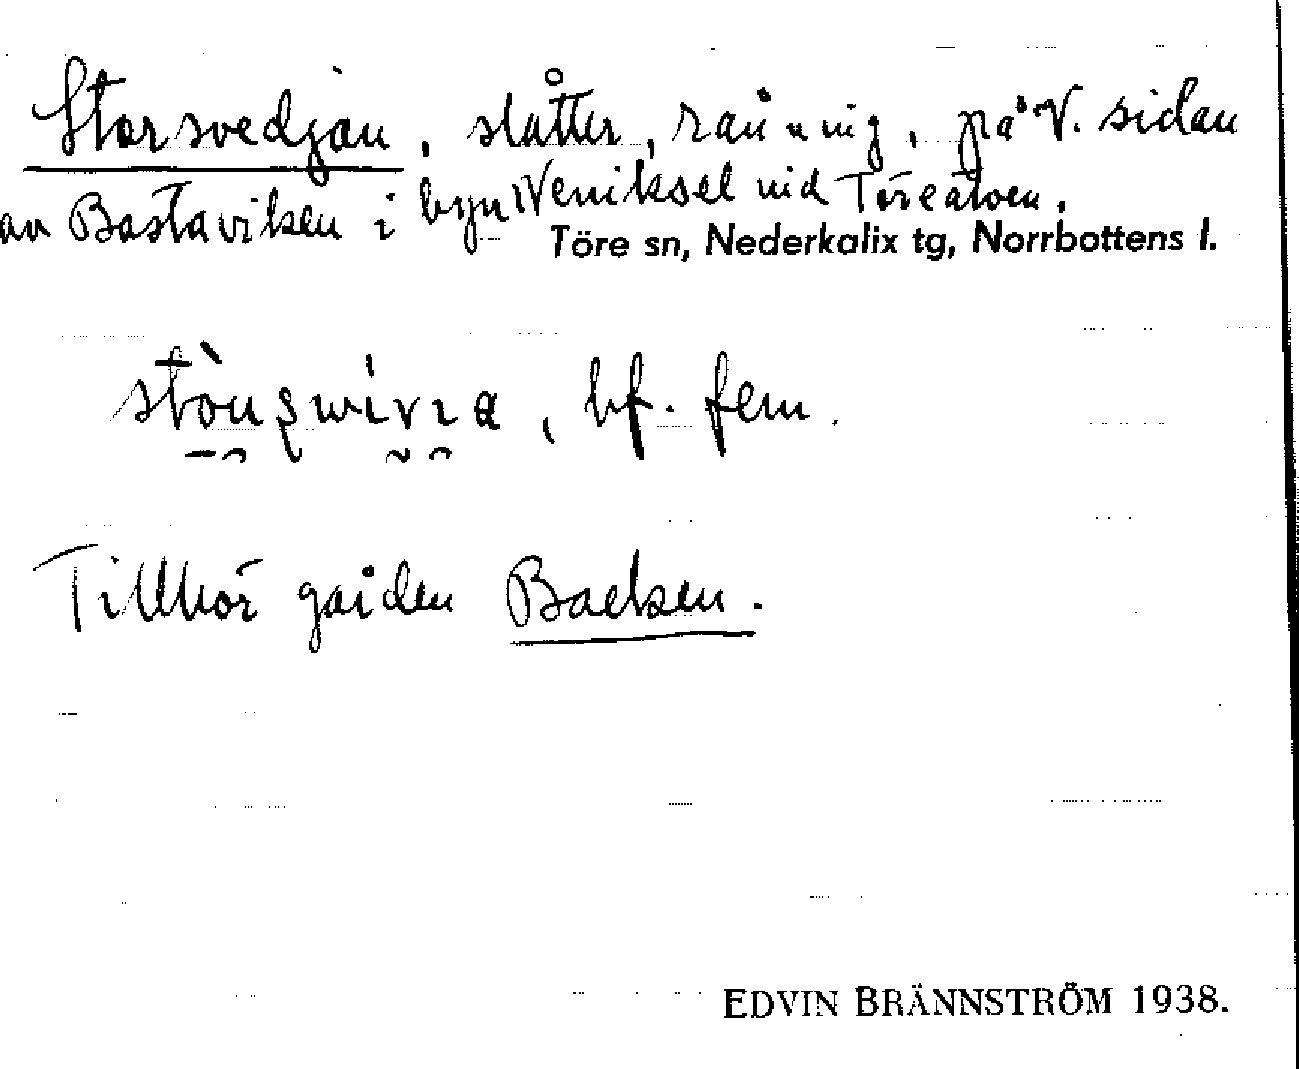 Storsvedjan, slåtter, rånning, på V. sidan
av Bastaviken i byn Weniksel vid Töreälven.
Töre sn, Nederkalix tg, Norrbottens l.
bf. fem.
Tillhör gården Backen.
EDVIN BRÄNNSTRÖM 1938.